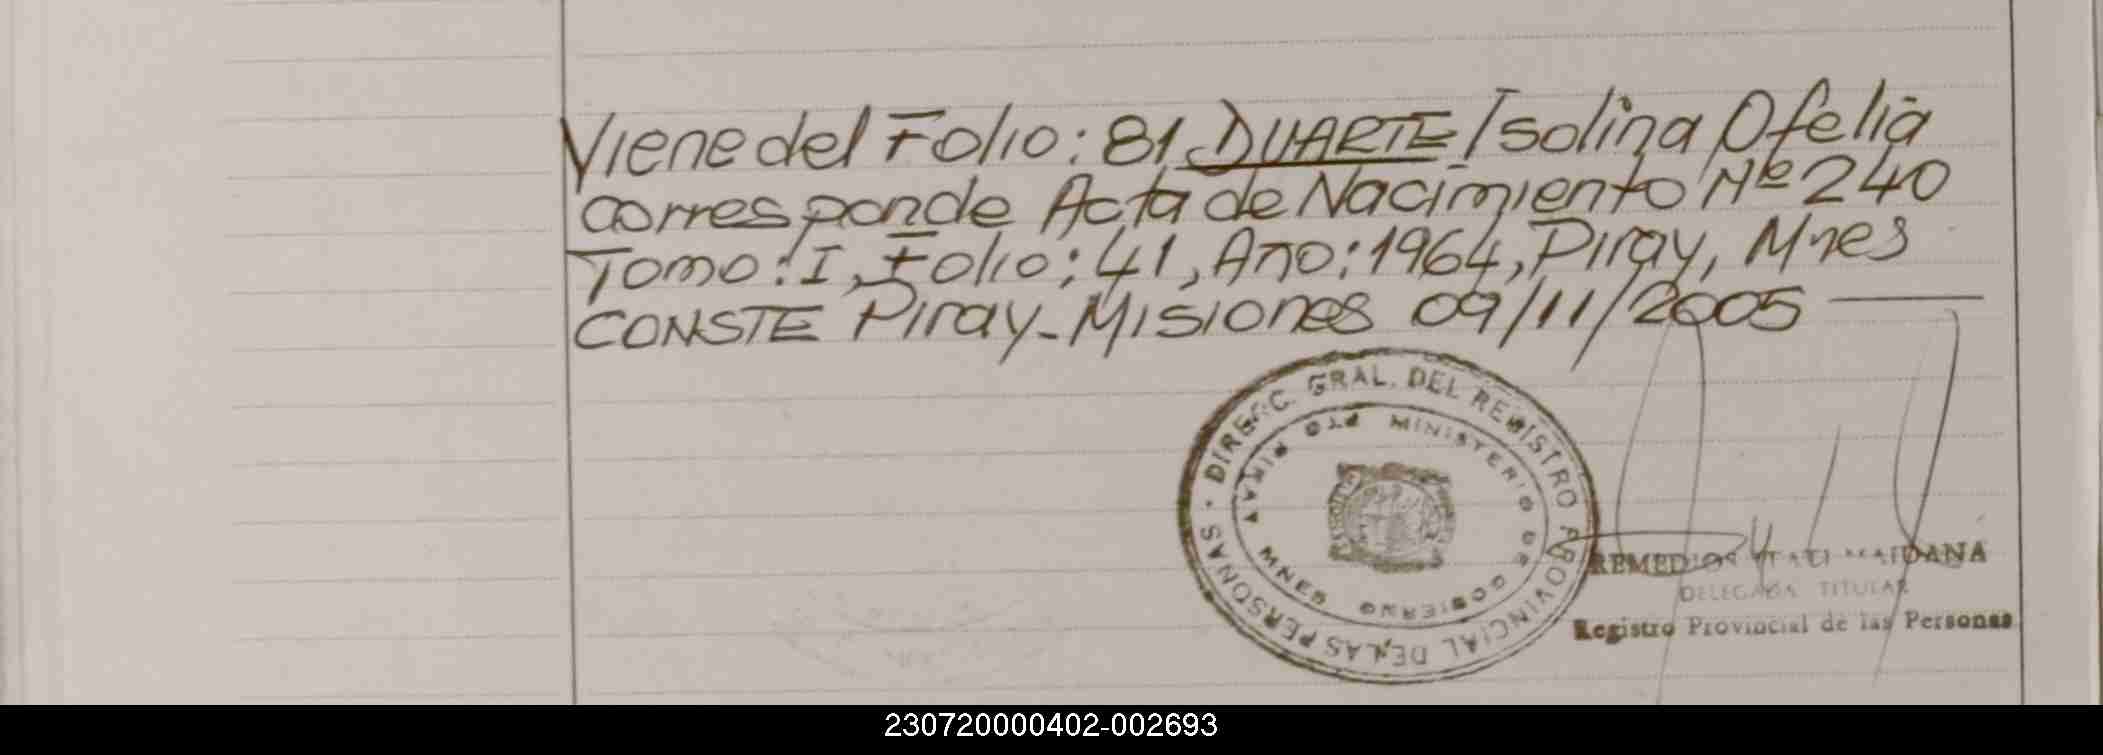 Viene del Folio: 81 DUARTE Isolina Ofelia
corresponde Acta de Nacimiento Nº 240
Tomo: I, Folio: 41, Año: 1964, Piray, Mnes
CONSTE Piray - Misiones 09/11/2005
DIRECC. GRAL. DEL REGISTRO PROVINCIAL DE LAS PERSONAS
MINISTERIO DE GOBIERNO
MNES PTO PIRAY
REMEDIOS ITATI MAIDANA
DELEGADA TITULAR
Registro Provincial de las Personas
230720000402-002693